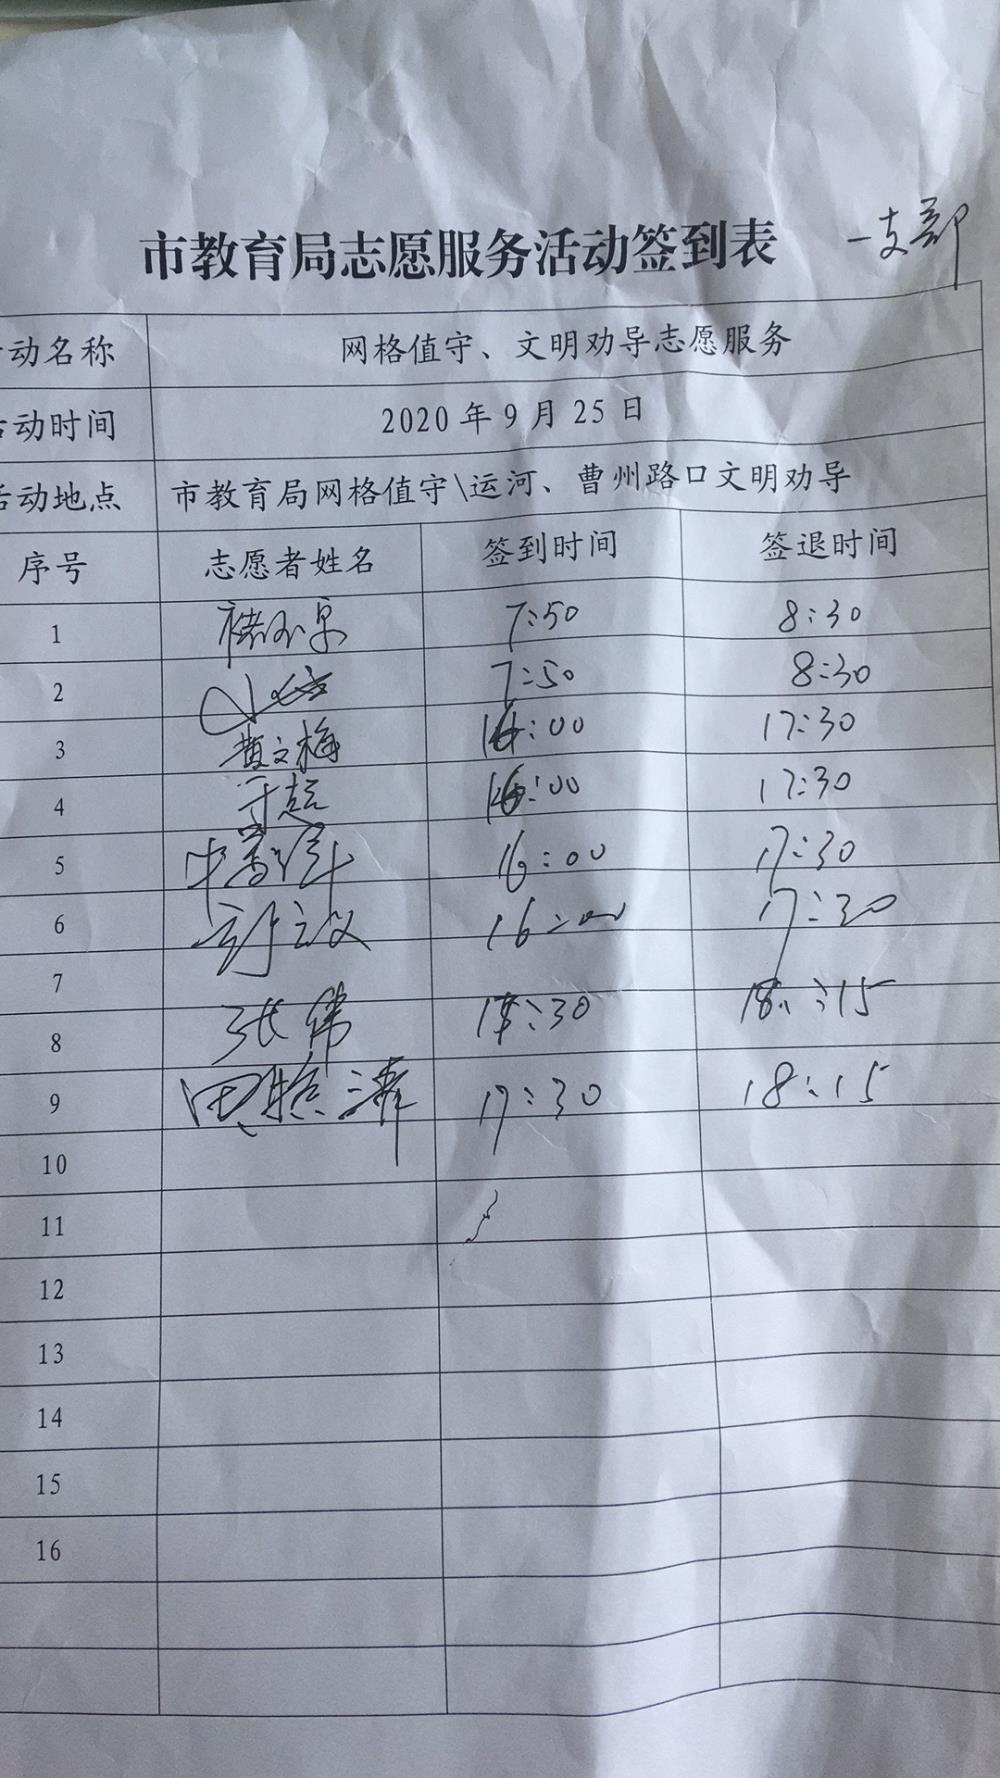 市教育局志愿服务活动签到表 一支部
动名称 网格值守、文明劝导志愿服务
动时间 2020年9月25日
活动地点 市教育局网格值守\运河、曹州路口文明劝导
序号 志愿者姓名 签到时间 签退时间
1 7:50 8:30
2 7:50 8:30
3 黄文梅 16:00 17:30
4 于超 16:00 17:30
5 16:00 17:30
6 16:00 17:30
7
8 张伟 17:30 18:15
9 17:30 18:15
10
11
12
13
14
15
16